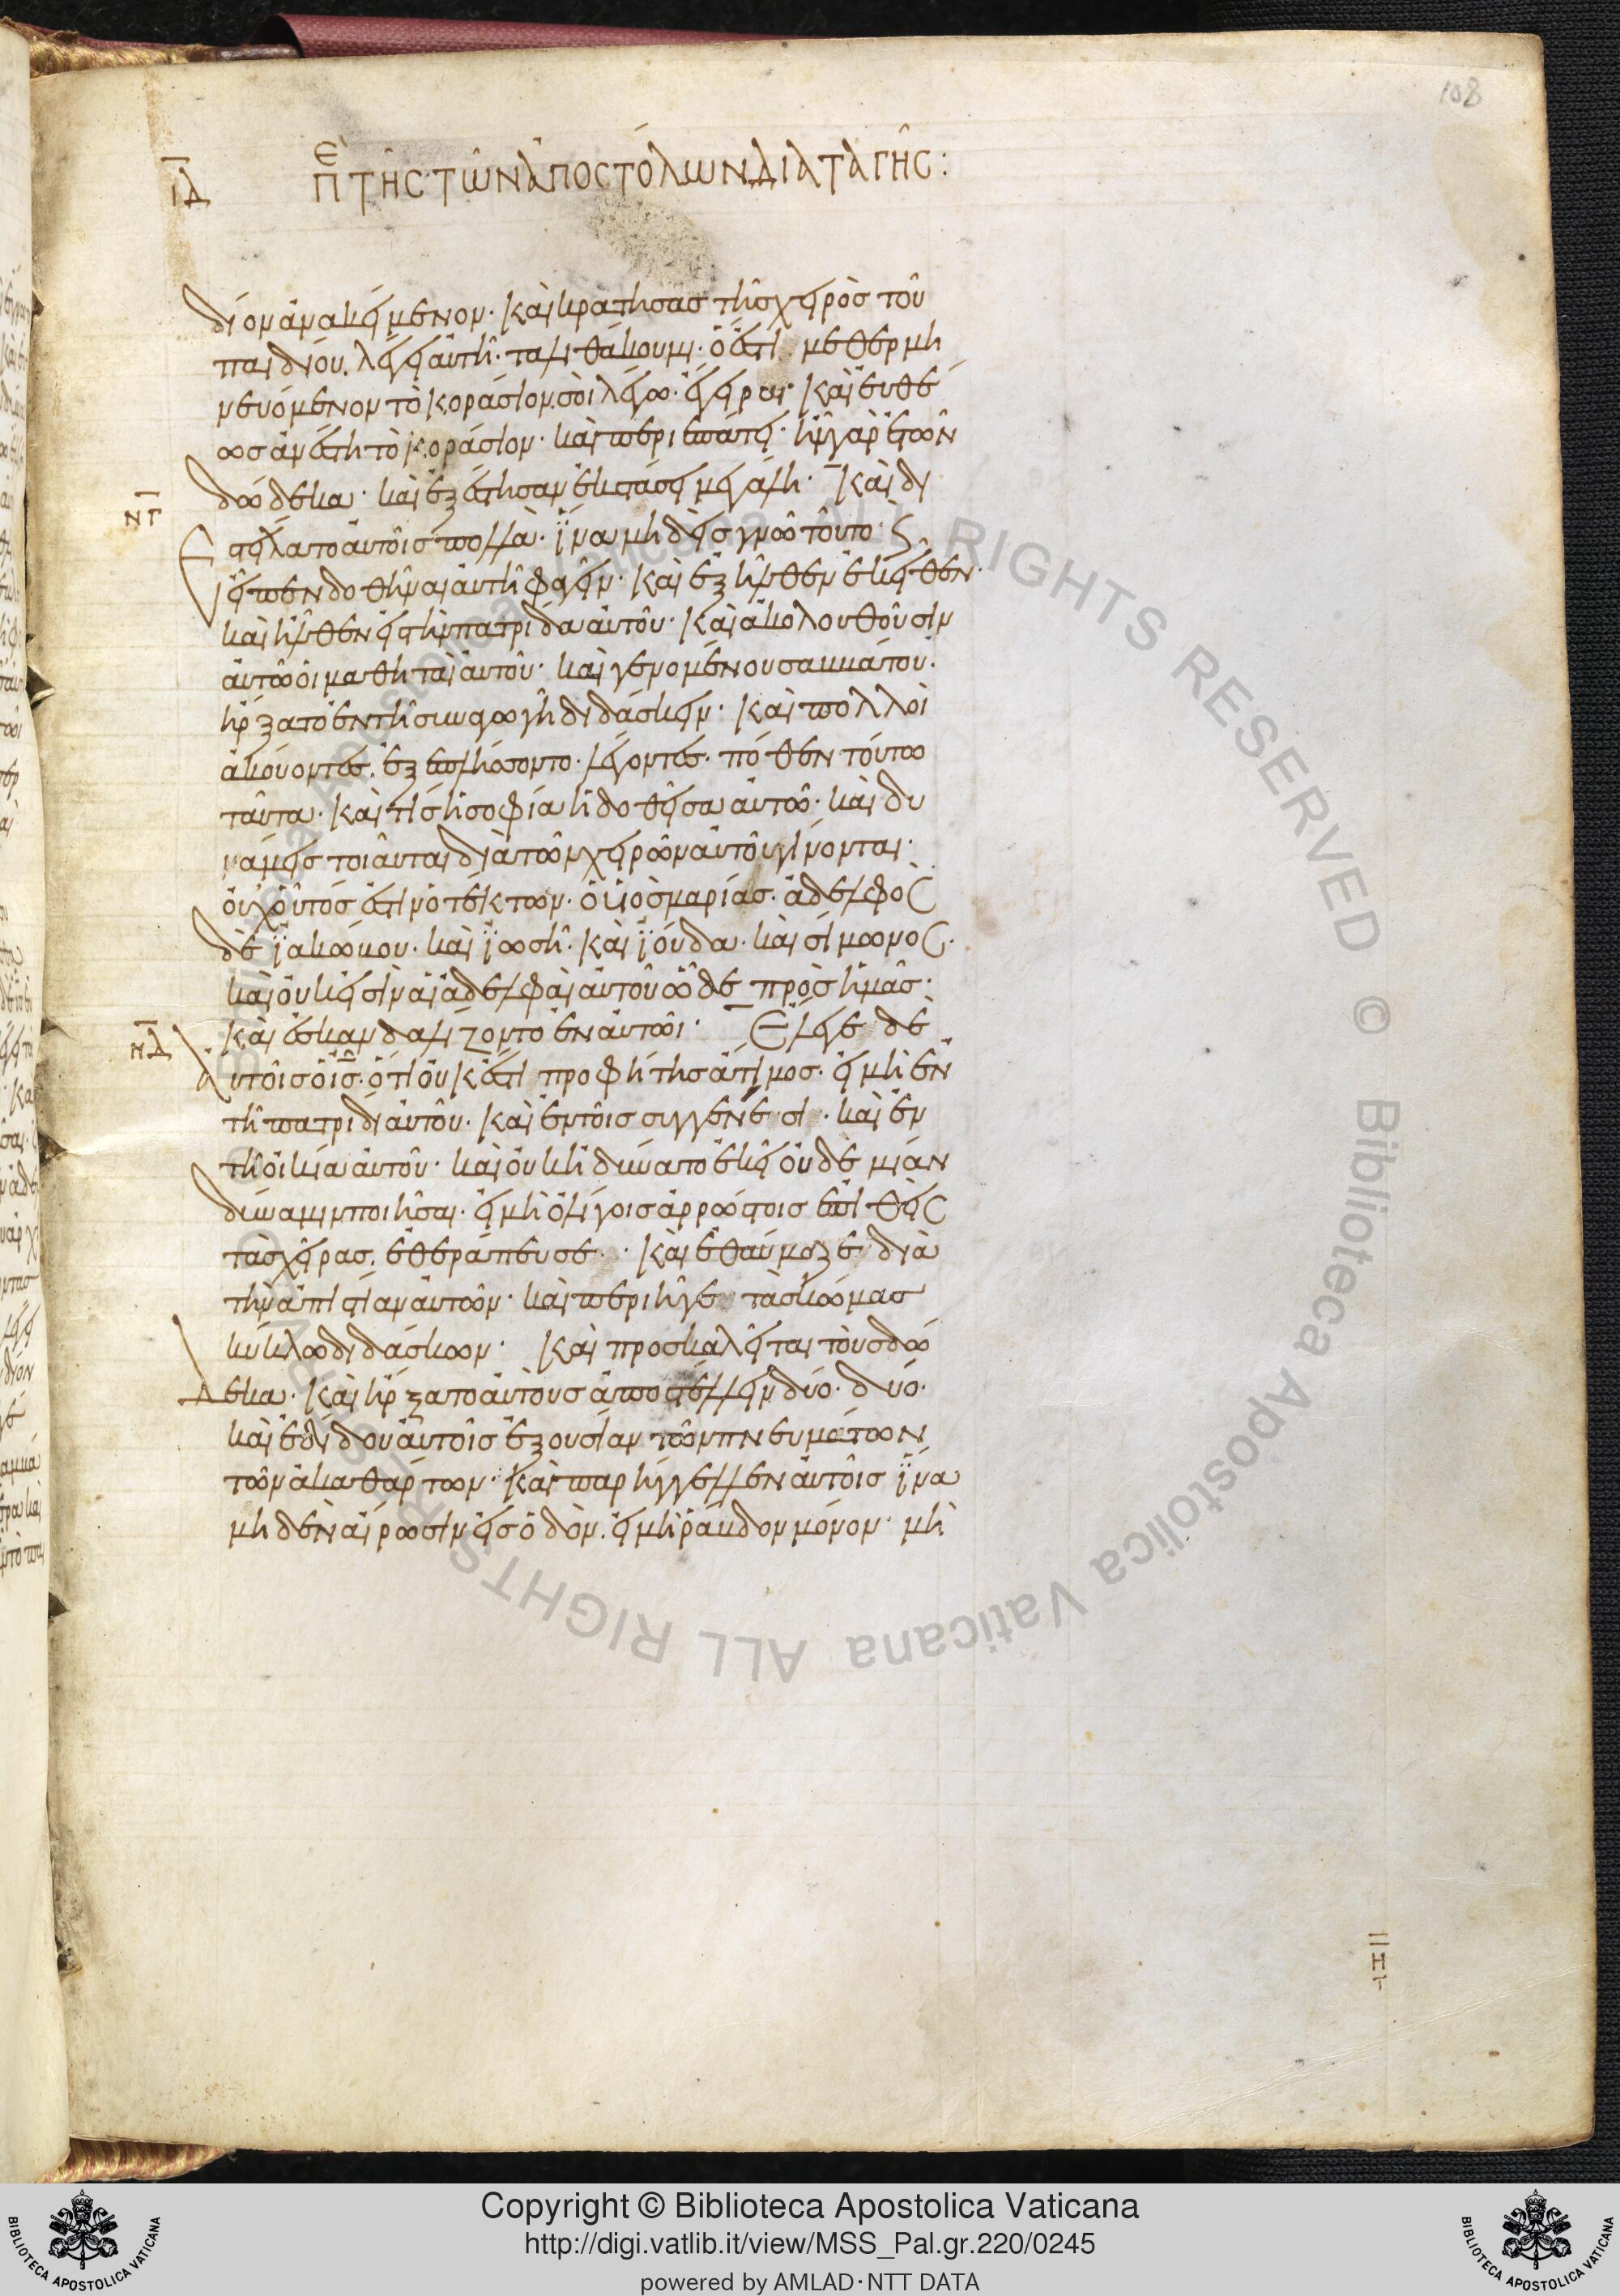 108
ΙΔ ΠΕ ΤΗΣ ΤΩΝ ΑΠΟΣΤΟΛΩΝ ΔΙΑΤΑΓΗΣ:
δίον ἀνακείμενον· καὶ κρατήσας τῆς χειρὸς τοῦ
παιδίου. λέγει αὐτῆ· ταλιθὰ κουμι· ὅ ἐστι μεθερμη
νευόμενον τὸ κοράσιον, σοὶ λέγω· ἔγειραι καὶ εὐθέ
ως ἀνέστη τὸ κοράσιον· καὶ περιεπάτει· ἦν γὰρ ἐτῶν
δώδεκα· καὶ ἐξέστησαν ἐκστάσει μεγάλη· Καὶ δι
ΝΓ
εστείλατο αὐτοῖς πολλὰ· ἵνα μηδεὶς γνῶ τοῦτο· ϛ
εἶπεν δοθῆναι αὐτῆ φαγεῖν· καὶ ἐξῆλθεν ἐκεῖθεν·
καὶ ἦλθεν εἰς τὴν πατρίδα αὐτοῦ· καὶ ἀκολουθοῦσιν
αὐτῶ οἱ μαθηταὶ αὐτοῦ· καὶ γενομένου σαββάτου.
ἤρξατο ἐν τῆ συναγωγῆ διδάσκειν· καὶ πολλοὶ
ἀκούοντες. ἐξεπλήσσοντο. λέγοντες· πόθεν τούτω
ταῦτα· καὶ τίς ἡ σοφία ἡ δοθεῖσα αὐτῶ· καὶ δυ
νάμεις τοιαῦται διὰ τῶν χειρῶν αὐτοῦ γίνονται·
οὐχ οὗτός ἐστιν ὁ τέκτων. ὁ υἱὸς μαρίας. ἀδελφὸς
δὲ ϊακώβου. καὶ ϊωσῆ· καὶ ϊούδα· καὶ σίμωνος·
καὶ οὐκ εἰσὶν αἱ ἀδελφαὶ αὐτοῦ ὧδε πρὸς ἡμᾶς·
καὶ ἐσκανδαλίζοντο ἐν αὐτῶι· Ἔλεγε δὲ
ΝΔ
αὐτοῖς ὁ ἰς. ὅτι οὐκ ἔστι προφήτης ἄτιμος. εἰ μὴ ἐν
τῆ πατρίδι αὐτοῦ· καὶ ἐν τοῖς συγγενέσι· καὶ ἐν
τῆ οἰκία αὐτοῦ· καὶ οὐκ ἠδύνατο ἐκεῖ οὐδὲ μίαν
δύναμιν ποιῆσαι. εἰ μὴ ὀλίγοις ἀρρώστοις ἐπιθεὶς
τὰς χεῖρας. ἐθεράπευσε· καὶ ἐθαύμαζε διὰ
τὴν ἀπιστίαν αὐτῶν· καὶ περιῆγε τὰς κώμας
κύκλω διδάσκων· Καὶ προσκαλεῖται τοὺς δώ
Δεκα· καὶ ἤρξατο αὐτοὺς ἀποστέλλειν δύο· δύο·
καὶ ἐδίδου αὐτοῖς ἐξουσίαν τῶν πνευμάτων
τῶν ἀκαθάρτων· καὶ παρήγγελλεν αὐτοῖς ἵνα
μηδὲν αἴρωσιν εἰς ὁδὸν. εἰ μὴ ῥάβδον μόνον· μὴ
Copyright © Biblioteca Apostolica Vaticana
http://digi.vatlib.it/view/MSS_Pal.gr.220/0245
powered by AMLAD·NTT DATA
BIBLIOTECA APOSTOLICA VATICANA
BIBLIOTECA APOSTOLICA VATICANA
© Biblioteca Apostolica Vaticana ALL RIGHTS RESERVED